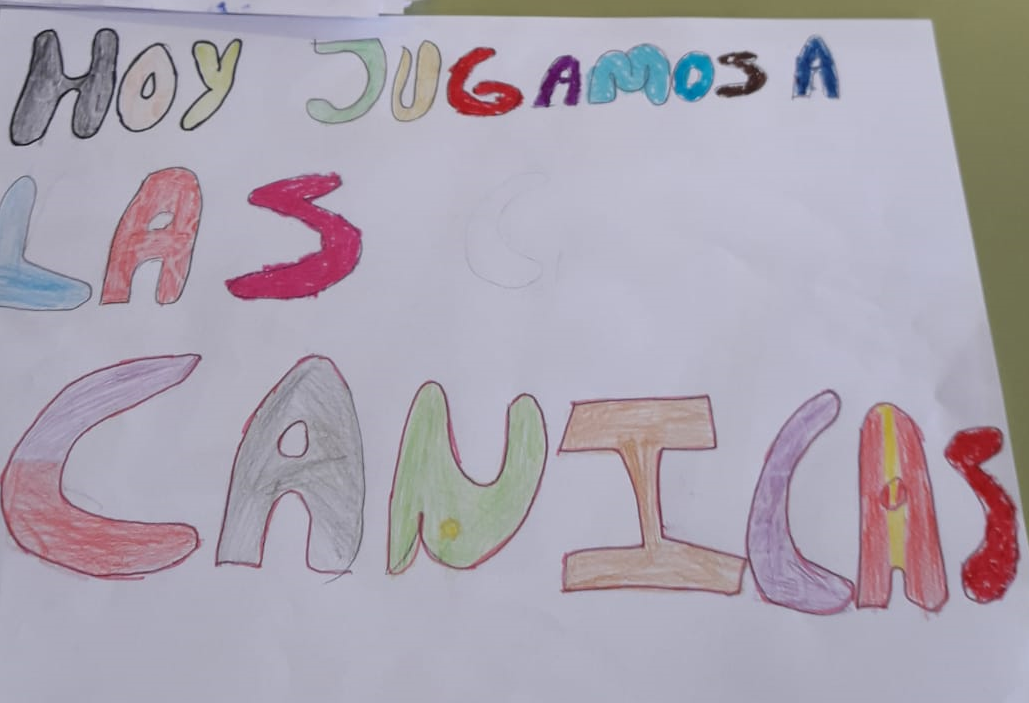 HOY JUGAMOS A
LAS C
CANICAS